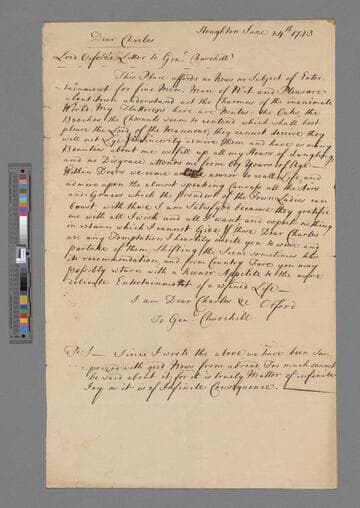 Houghton June 24th 1743
Dear Charles
Lord Orford's Letter to Genl Churchill
This Place affords no News no Subject of Enter
tainment for fine Men. Men of Wit and Pleasure
about Town understand not the Charmes of the inanimate
World. My Flatterers here are Mutes. the Oakes the
Beeches the Chesnuts seem to contend which shall best
please the Lord of the Mannour, they cannot deceive they
will not Lye. I in Sincerity admire them and have as many
Beauties about me as fill up all my Hours of dangling,
and no Disgrace attends me from 67 Years of Age.
Within Doors we come nearer to reall Life, and
admire upon the almost speaking Canvass all the Airs
and Graces which the proudest of the Town Ladies can
boast with these I am Satisfyed because they gratifie
me with all I wish and all I want and expect nothing
in return which I cannot Give If these Dear Charles
are any Temptations I heartily invite you to come and
partake of them. Shifting the Scene sometimes has
its recommendation, and from Country Fare you may
possibly return with a keener Appetite to the more
delicate Entertainments of a refined Life
I am Dear Charles &c Orford
To Genl Churchill
P: S Since I wrote the above we have been Sur
prized with good News from abroad, Too much cannot
be said about it; for it is truely Matter of infinite
Joy as it is of Infinite Consequence.